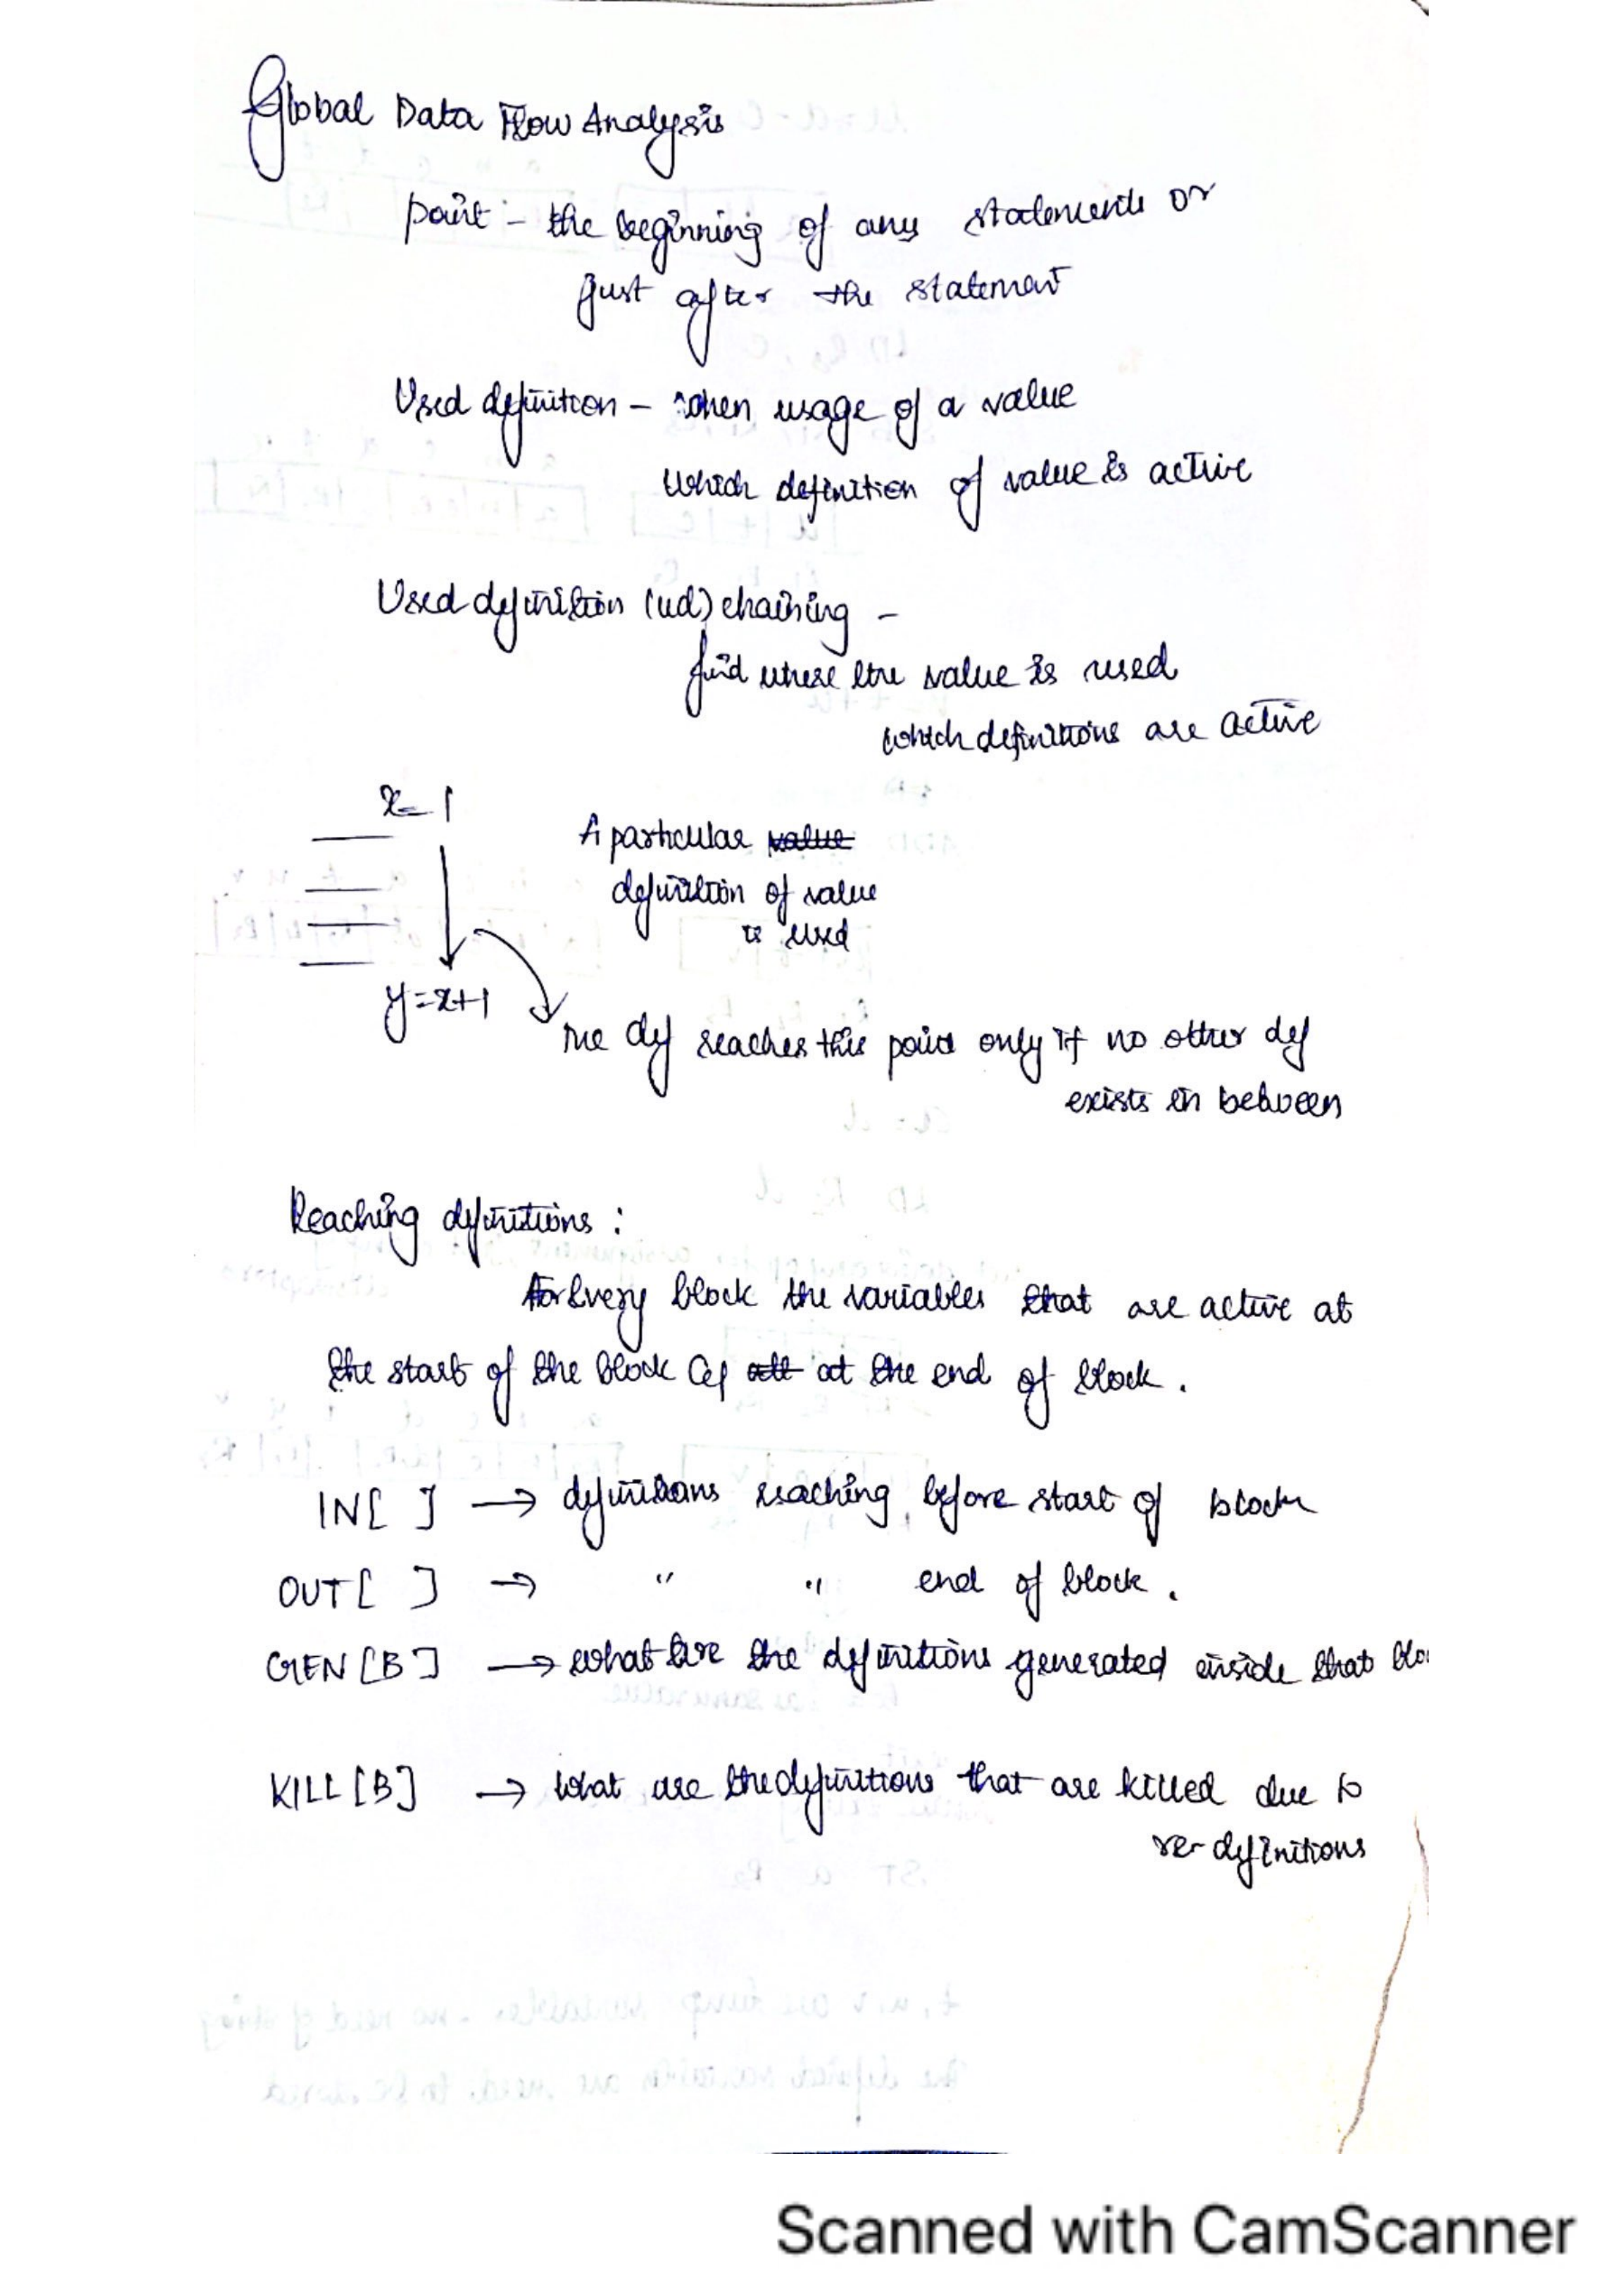 Global Data Flow Analysis
point - the beginning of any statements or
just after the statement
Used definition - when usage of a value
which definition of value is active
Used definition (ud) chaining -
find where the value is used
which definitions are active
x=1
A particular value
definition of value
is used
y=x+1
The def reaches this point only if no other def
exists in between
Reaching definitions :
For Every block the variables that are active at
the start of the block at the end of block.
IN[ ] → definitions reaching before start of block
OUT[ ] → " " end of block.
GEN[B] → what are the definitions generated inside that blo
KILL[B] → what are the definitions that are killed due to
re-definitions
Scanned with CamScanner